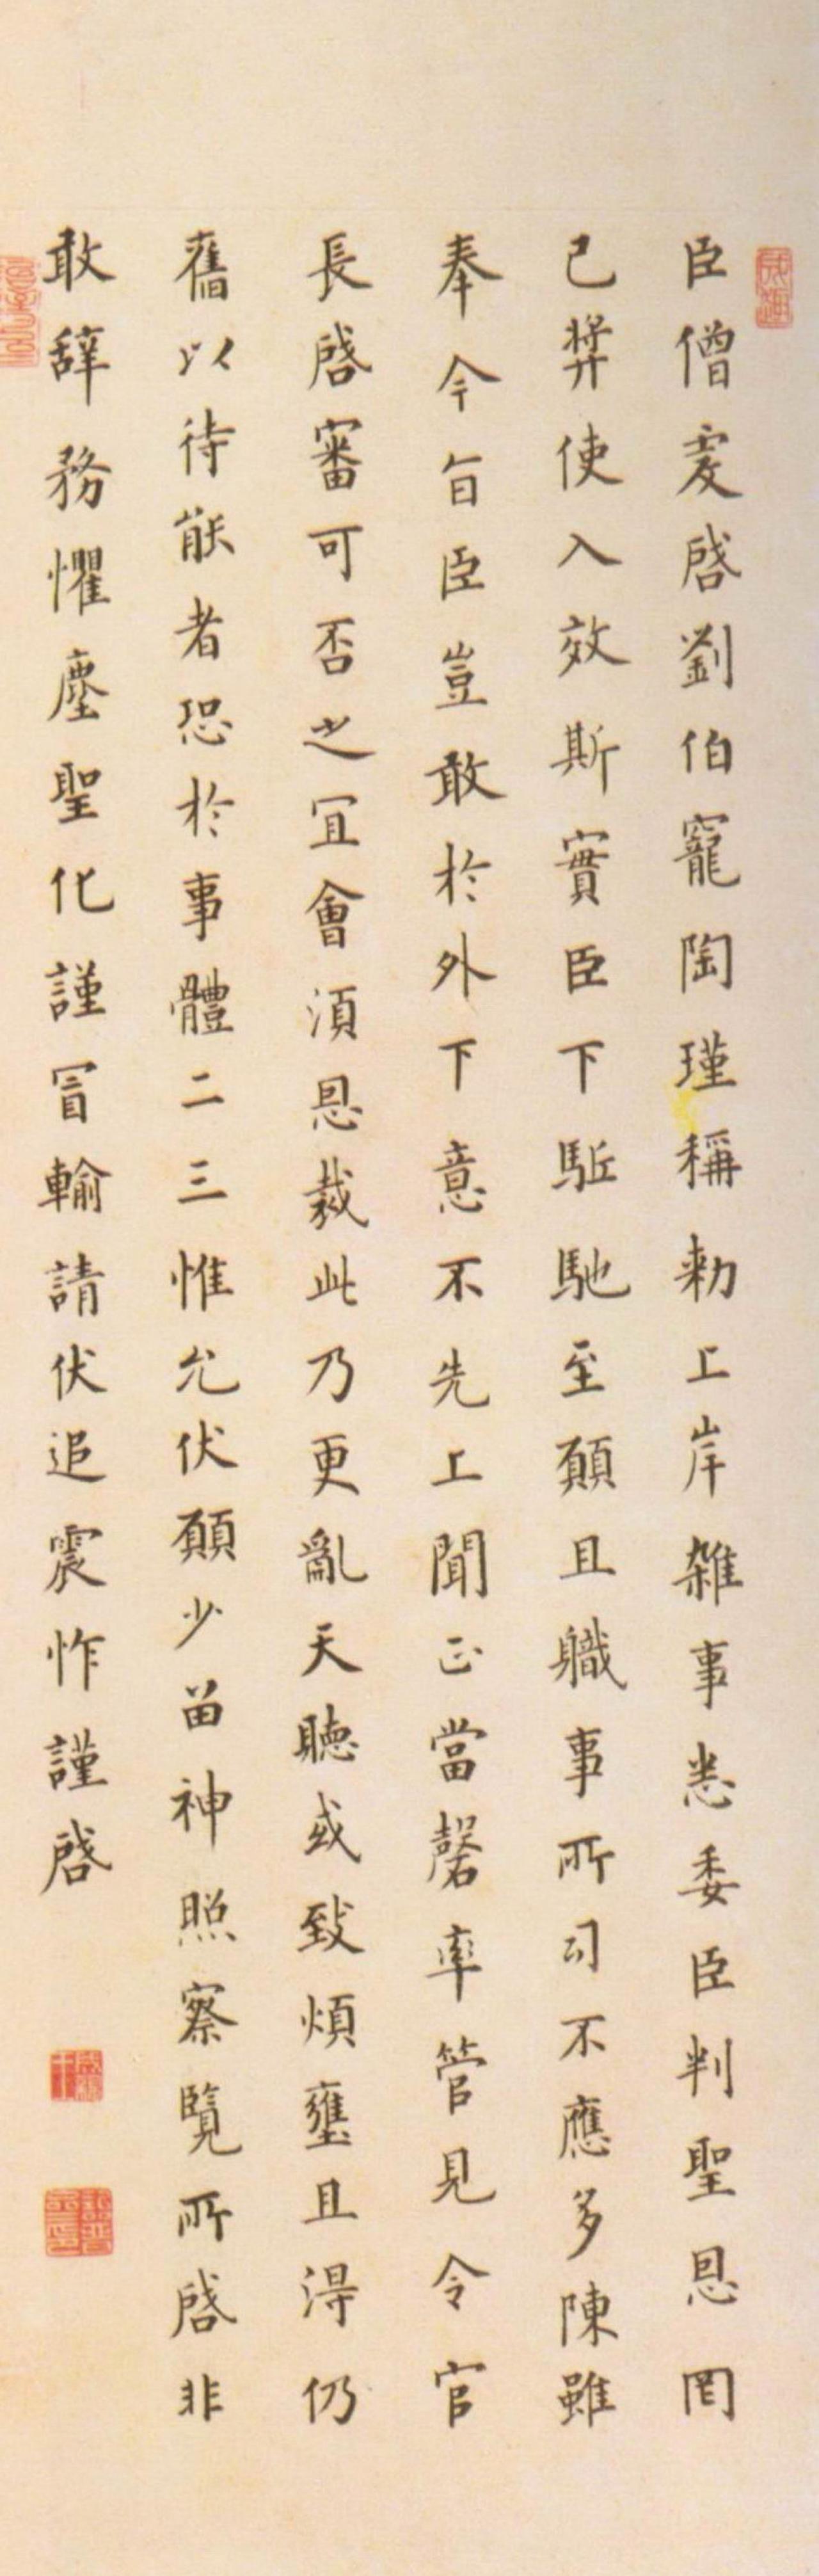 臣僧虔啓劉伯寵陶瑾稱勑上岸雜事悉委臣判聖恩罔
已弊使入效斯實臣下駈馳至願且職事所司不應多陳雖
奉今旨臣豈敢於外下意不先上聞正當罄率管見令官
長啓審可否之宜會須恩裁此乃更亂天聽或致煩壅且得仍
舊以待能者恐於事體二三惟允伏願少留神照察覽所啓非
敢辞務懼塵聖化謹冒輸請伏追震怍謹啓